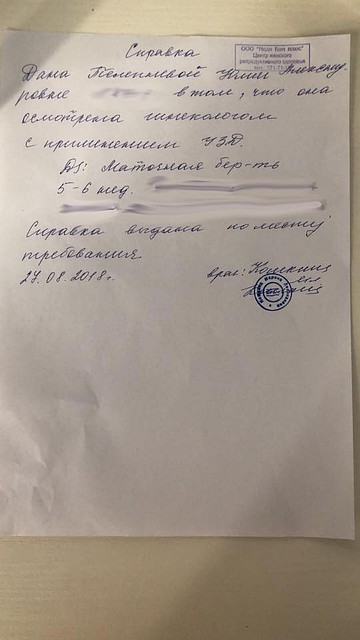 Справка
ООО "Леди Бест плюс"
Центр женского
репродуктивного здоровья
Дана Телепневой Юлии Александ-
ровне в том, что она
осмотрена гинекологом
с применением УЗД.
Ds: Маточная бер-ть
5-6 нед.
Справка выдана по месту
требования.
27.08.2018г. врач: